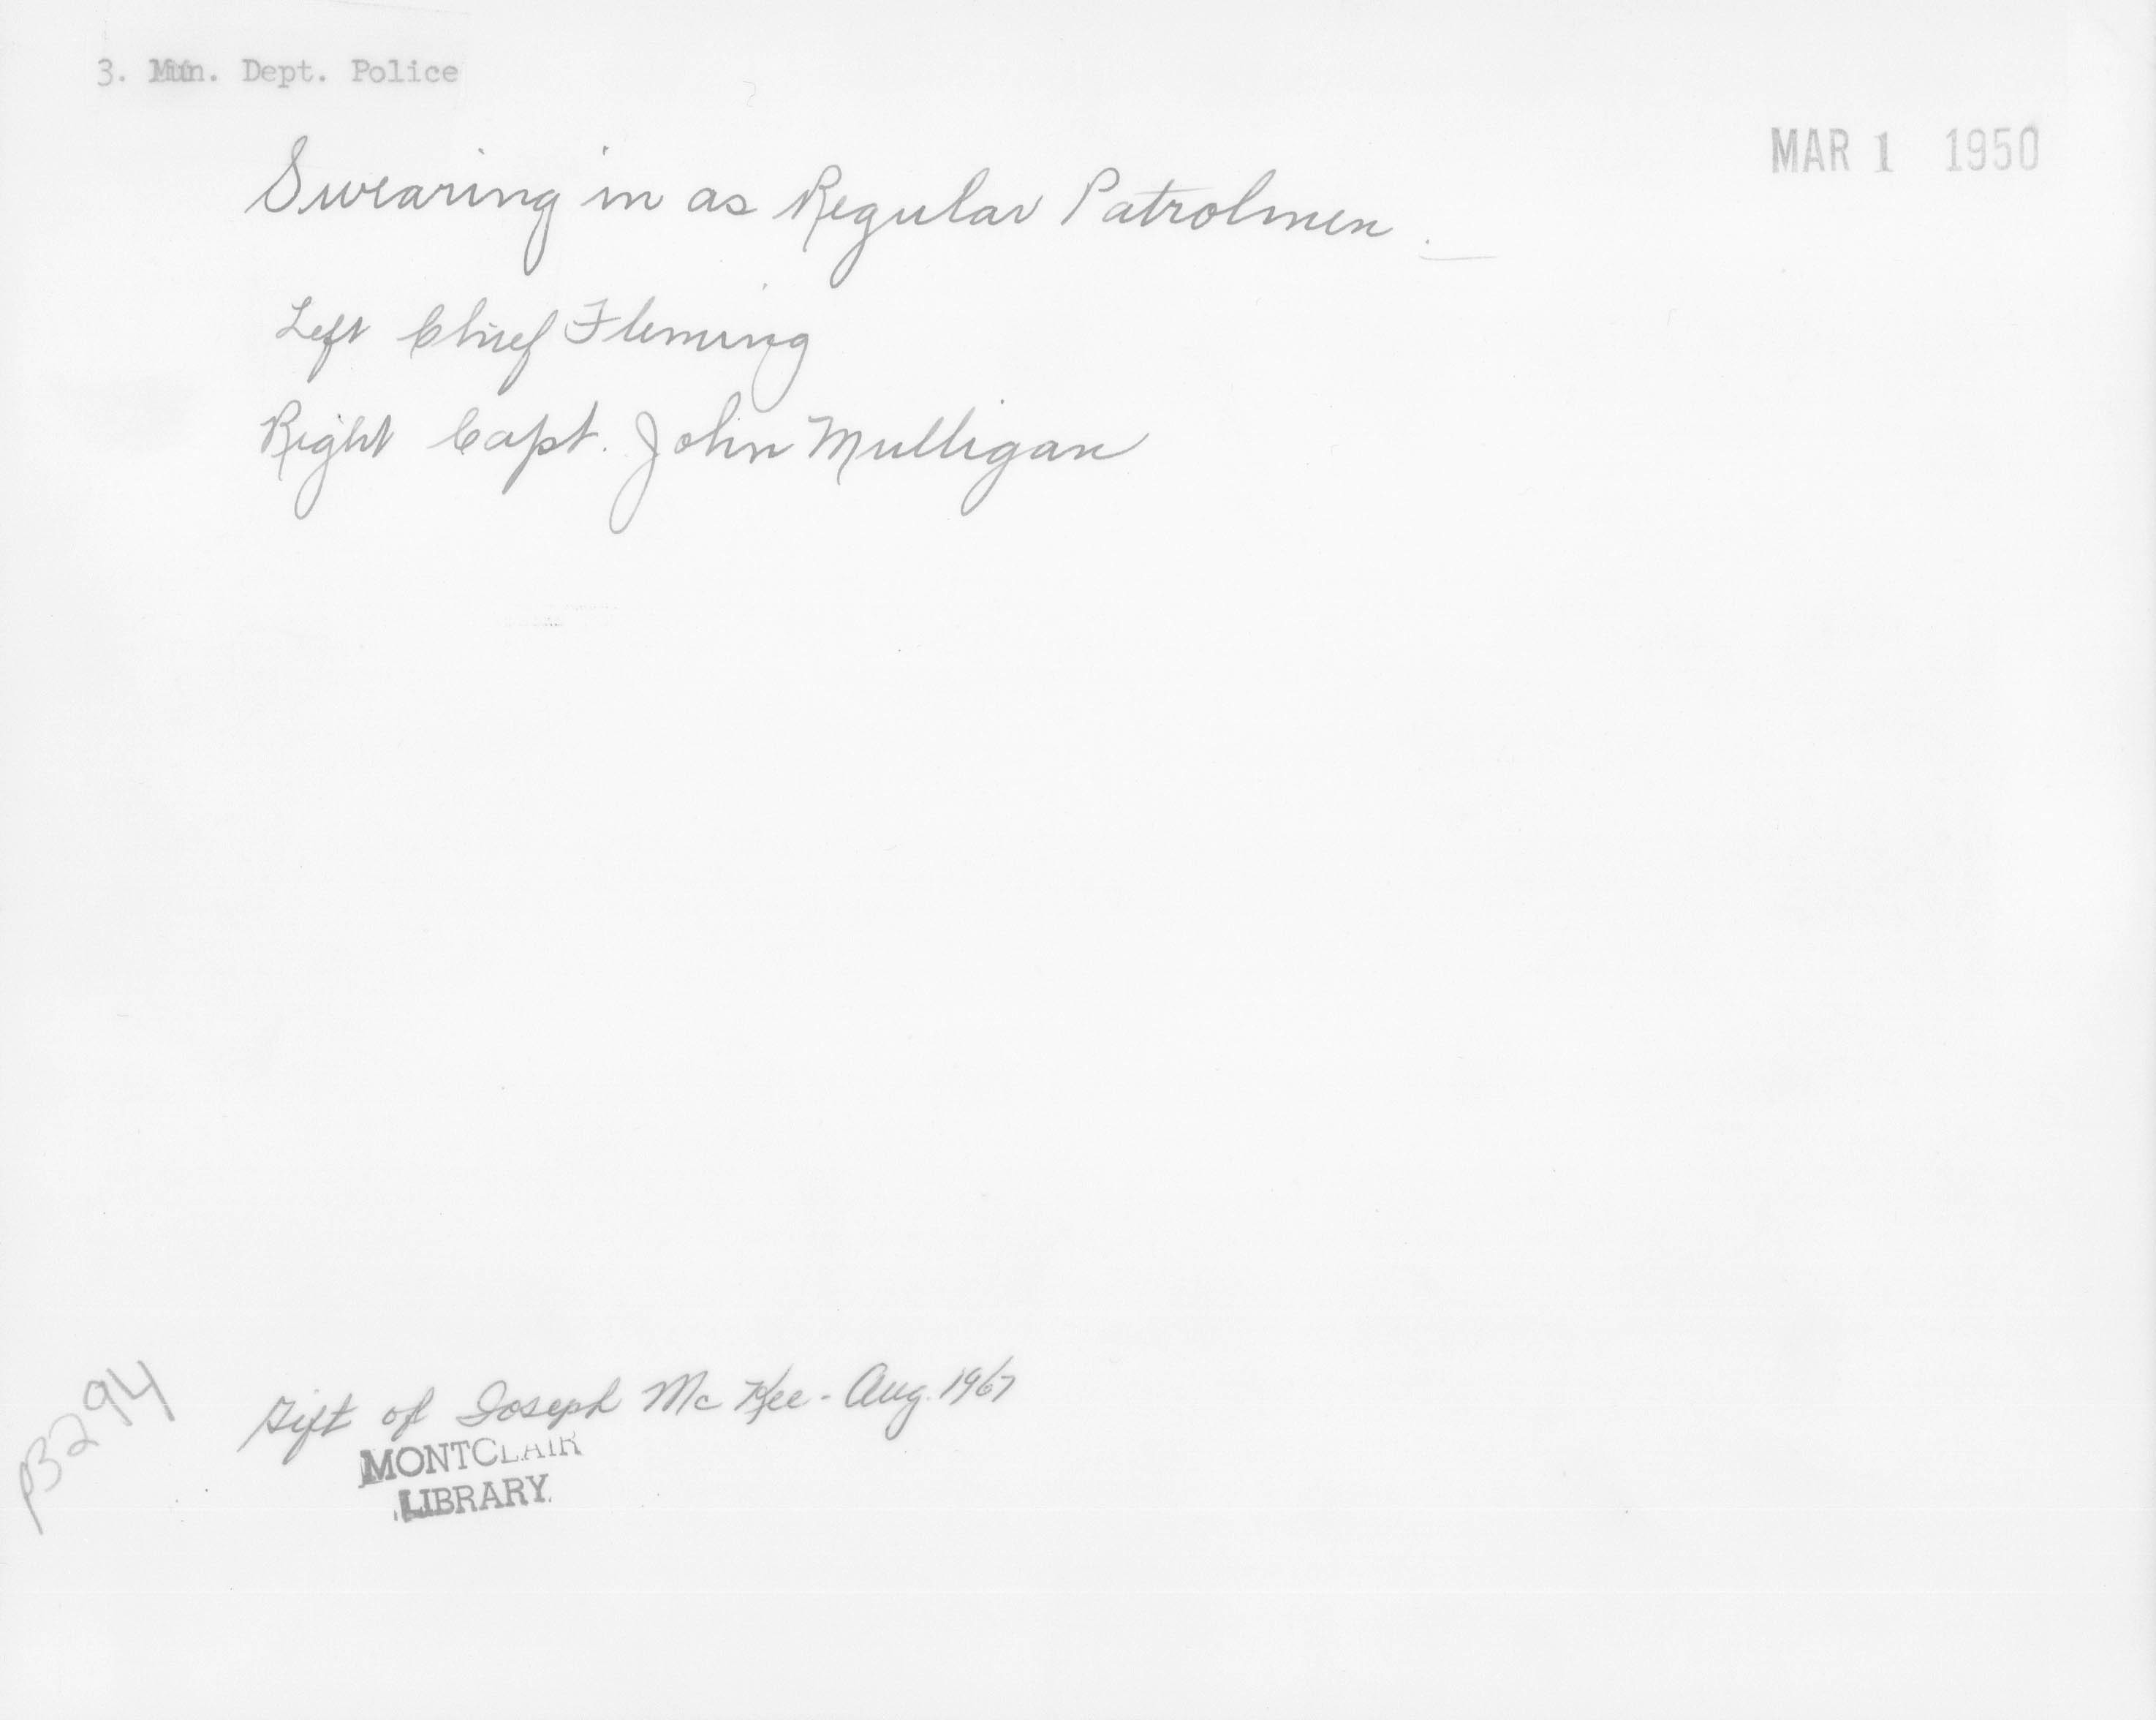 3. Mun. Dept. Police
MAR 1 1950
Swearing in as Regular Patrolmen.
Left Chief Fleming
Right Capt. John Mulligan
Gift of Joseph McKee - Aug. 1967
MONTCLAIR
LIBRARY
p3294